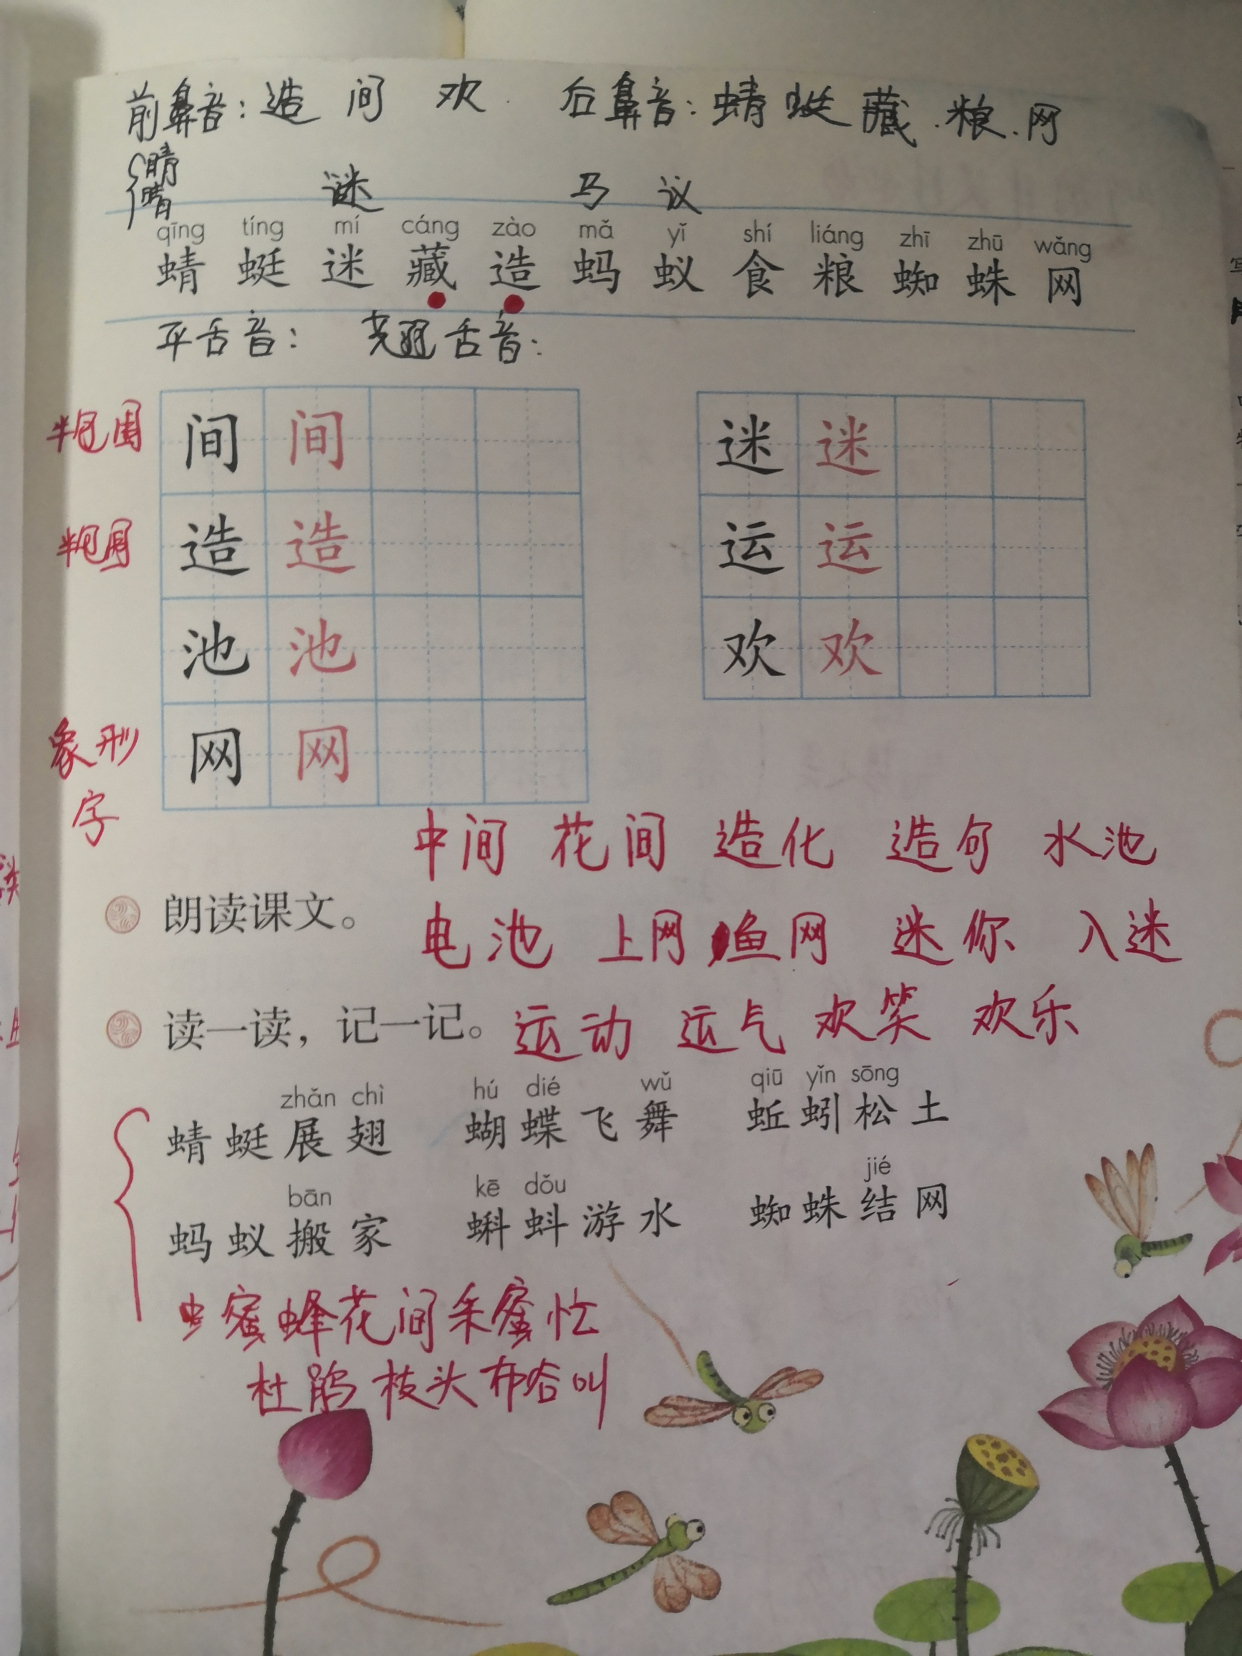 前鼻音：造 间 欢 后鼻音：蜻 蜓 藏 . 粮 . 网
睛
晴 谜 马 议
qīng tíng mí cáng zào mǎ yǐ shí liáng zhī zhū wǎng
蜻 蜓 迷 藏 造 蚂 蚁 食 粮 蜘 蛛 网
平舌音： 翘舌音：
半包围 间 间 迷 迷
半包围 造 造 运 运
池 池 欢 欢
象形字 网 网
中间 花间 造化 造句 水池
朗读课文。
电池 上网 鱼网 迷你 入迷
读一读，记一记。 运动 运气 欢笑 欢乐
zhǎn chì hú dié wǔ qiū yǐn sōng
蜻蜓展翅 蝴蝶飞舞 蚯蚓松土
bān kē dǒu jié
蚂蚁搬家 蝌蚪游水 蜘蛛结网
蜜蜂花间采蜜忙
杜鹃枝头布谷叫